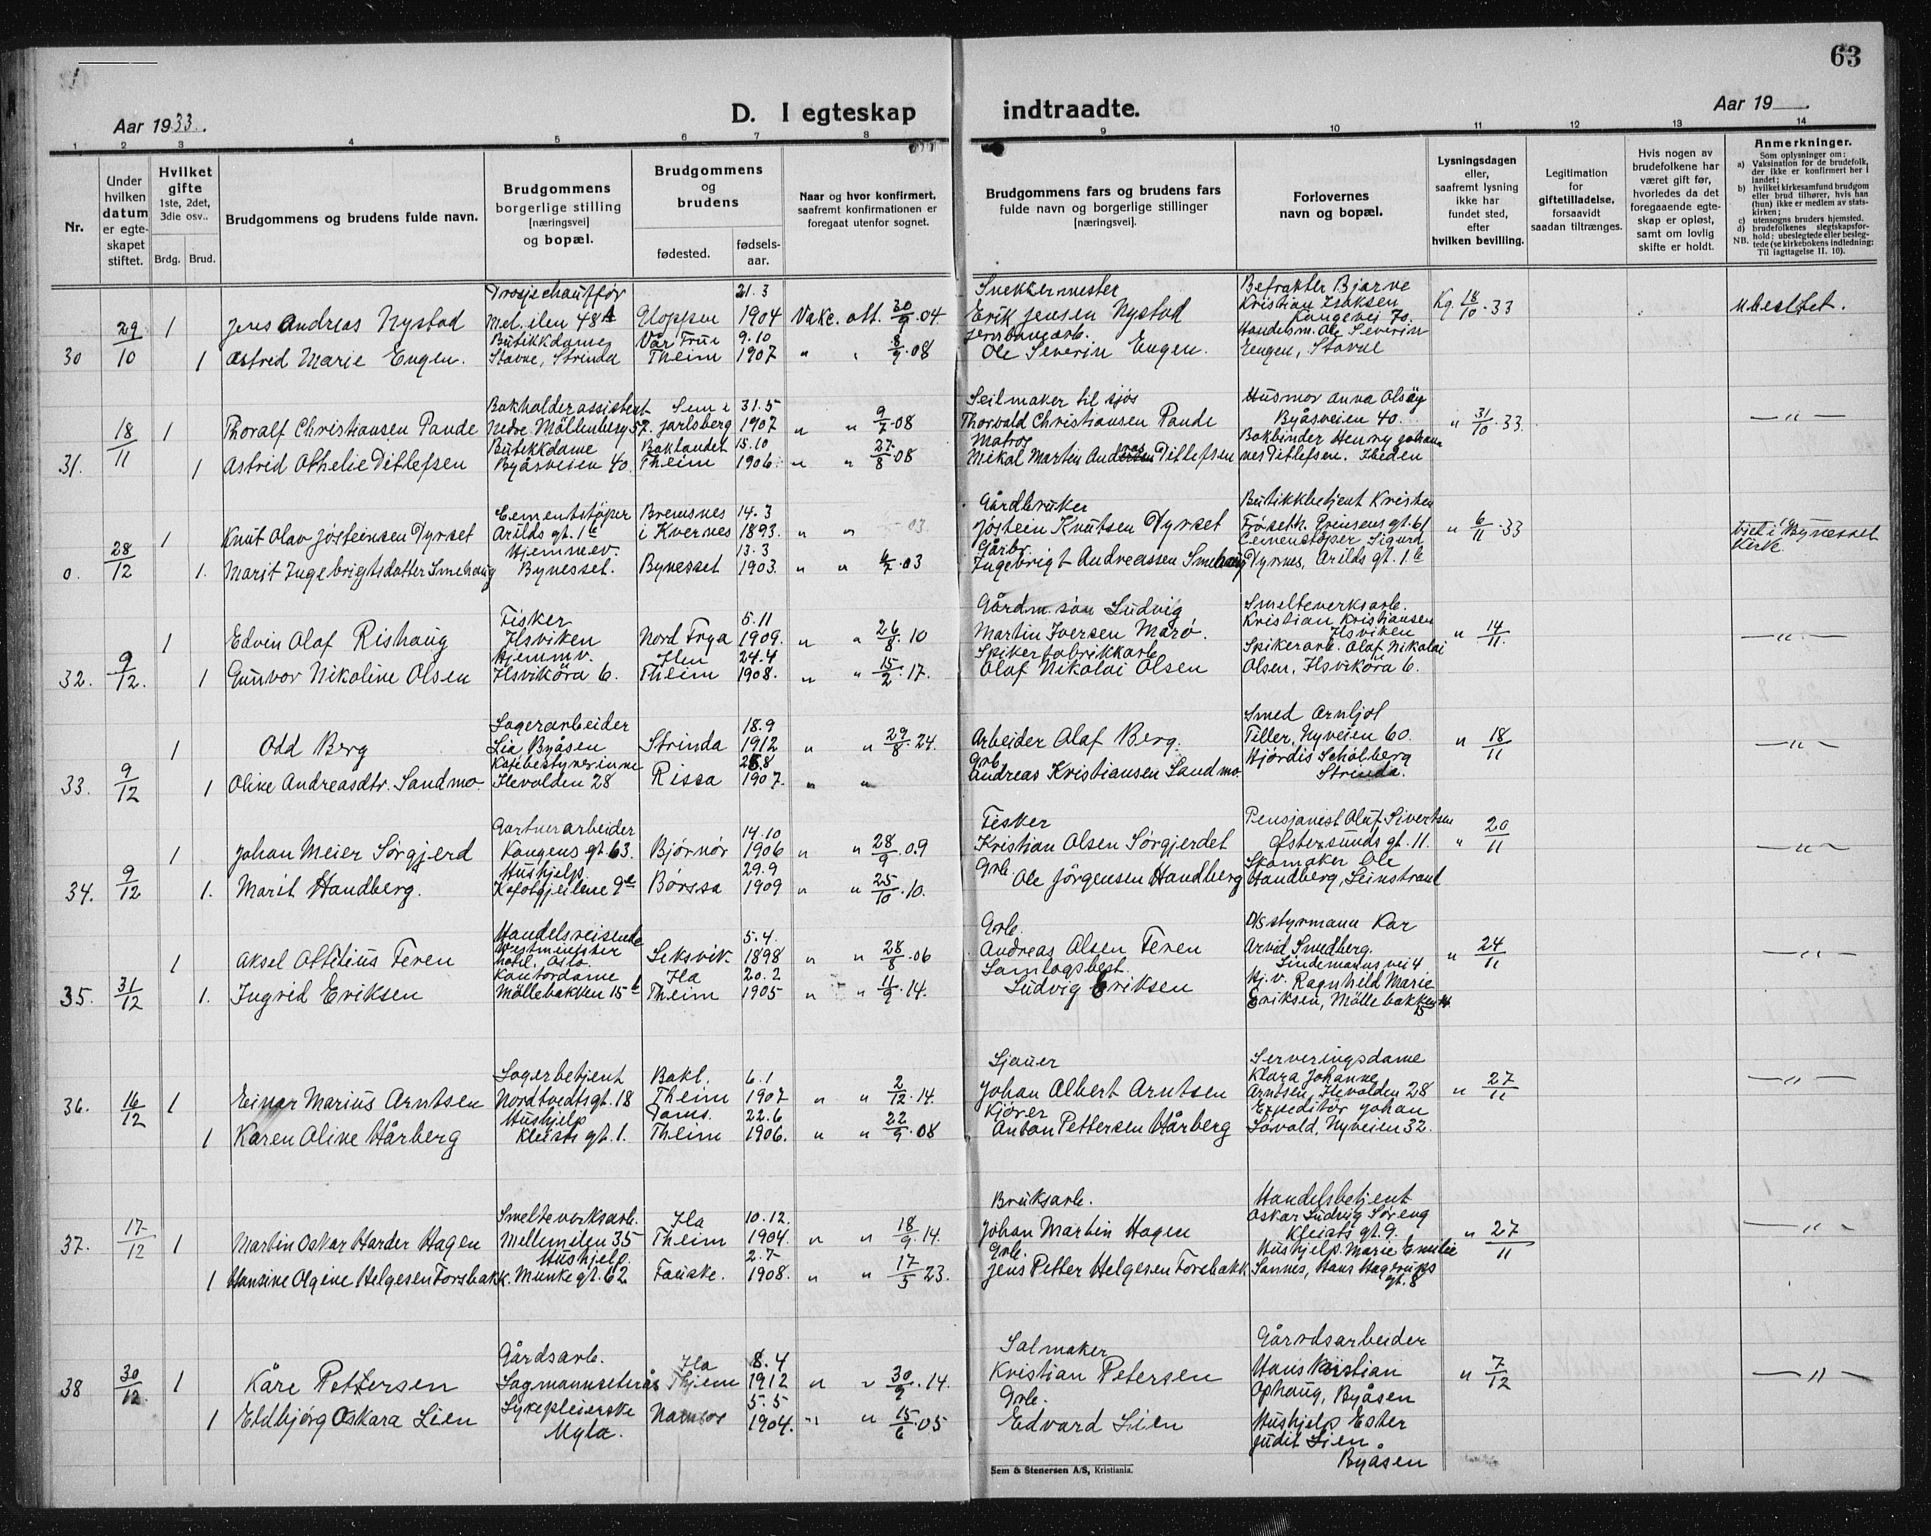 63
Aar 1933.
D. I egteskap indtraadte.
Aar 19
1 2 3 4 5 6 7 8 9 10 11 12 13 14
Nr.
Under hvilken datum er egteskapet stiftet.
Hvilket gifte 1ste, 2det, 3die osv..
Brdg. Brud.
Brudgommens og brudens fulde navn.
Brudgommens borgerlige stilling [næringsvei] og bopæl.
Brudgommens og brudens
fødested. fødselsaar.
Naar og hvor konfirmert, saafremt konfirmationen er foregaat utenfor sognet.
Brudgommens fars og brudens fars fulde navn og borgerlige stillinger [næringsvei].
Forlovernes navn og bopæl.
Lysningsdagen eller, saafremt lysning ikke har fundet sted, efter hvilken bevilling.
Legitimation for giftetilladelse, forsaavidt saadan tiltrænges.
Hvis nogen av brudefolkene har været gift før, hvorledes da det foregaaende egteskap er opløst, samt om lovlig skifte er holdt.
Anmerkninger.
Som oplysninger om:
a) Vaksination før de brudefolk, der ikke er konfirmert her i landet;
b) hvilket kirkesamfund brudgom eller brud tilhører, hvis han (hun) ikke er medlem av statskirken;
c) utensogns bruders hjemsted.
d) brudefolkenes slegtskapsforhold: ubeslegtede eller beslegtede (se kirkebokens indledning: Til iagttagelse II. 10).
NB.
Drosjechauffør 21.3 Snekkermester Befrakter Bjarne
29/10 1 Jens Andreas Nystad Mel. ilen 48A Gloppen 1904 Vake. att. 30/9.04. Erik Jensen Nystad Kristian Isaksen Kongevei 70. Kg. 18/10.33 Ubesltet.
Butikkdame Vår Frue 9.10 Jernbanearb. Handelsm. Ole Severin
30 1 Astrid Marie Engen. Stavne, Strinda Theim 1907 " " 8/9.08 Ole Severin Engen. Eengen, Stavne
Bokholderassistent Sem i 31.5 Seilmaker til sjøs Husmor Anna Olsøy
18/11 1 Thoralf Christiansen Pande Nedre Möllenberg 57. Jarlsberg 1907 " " 9/7.08 Thorvald Christiansen Pande Byåsveien 40. " 31/10.33. —"—
Butikkdame Baklandet 15.10 Matros Bokbinder Henry Johan
31. 1 Astrid Othelie Ditlefsen Byåsveien 40. Theim 1906. " " 27/8.08 Mikal Martin Ditlefsen nes Ditlefsen.
Cementstøper Bremsnes 14.3 Gårdbruker Butikkbetjent Kristen
1 Knut Olav Jøsteinsen Dyrset Arilds gt. 1b i Kvernes 1893. " " 03 Jøstein Knutsen Dyrset Frøseth. Prinsens gt. 61 " 6/11.33 Viet i Bynesset kirk.
28/12 Hjemmev. 13.3 Gårbr. Cementstøper Sigurd
0. 1. Marit Ingebrigtsdatter Smehaug Bynesset. Bynesset 1903. " " 4/7.03 Ingebrigt Andreassen Smehaug Dyrnes, Arilds gt. 1b
Fisker 5.11 Gårdm. søn Ludvig Smelteverksarb.
1 Edvin Olaf Rishaug Ilsviken Nord Frøya 1909. " " 26/8.10 Martin Iversen Marø. Kristian Kristiansen Ilsviken " 14/11. —"—
9/12. Hjemmv. Ilen 24.4 Spikerfabrikkarb. Spikerarb. Olaf Nikolai
32. 1 Gunvor Nikoline Olsen Ilsvikøra 6. Theim 1908. " " 15/2.17. Olaf Nikolai Olsen Olsen, Ilsvikøra 6.
Lagerarbeider 18.9 Smed Arnljot
1 Odd Berg Lia, Byåsen Strinda 1912 " " 29/8.24. Arbeider Olaf Berg. Tiller, Nyveien 60. " 18/11 —"—
Kafebestyrerinne Grb. Hjørdis Schølberg
33. 9/12 1 Oline Andreasdtr. Sandmo. Ilevolden 28 Rissa 1907. " " Andreas Kristiansen Sandmo. Strinda.
Gartnerarbeider 14.10 Fisker Pensjonist Oluf Sivertsen
1 Johan Meier Sørgjerd Kongens gt. 63. Bjørnør 1906 " " 28/9.09 Kristian Olsen Sørgjerdet Østersunds gt. 11. " 20/11 —"—
9/12 Hushjelp 29.9 Grb. Skomaker Ole
34. 1. Marit Handberg. 9e Børssa 1909 " " 25/10.10. Ole Jörgensen Handberg Handberg, Leinstrand
Handelsreisende 5.4. Grb. styrmann Kar
1 Aksel Ottelius Feren Westminster hotel, Oslo. Leksvik 1898 " " 28/8.06 Andreas Olsen Feren Arvid Smedberg. Lindemannsvei 4 " 24/11 —"—
Kontordame Ila 20.2 Samlagsbest. Hj.v. Ragnhild Marie
35. 31/12 1. Ingrid Eriksen Møllebakken 15b Theim 1905 " " 11/9.14. Ludvig Eriksen Eriksen, Møllebakken 15
Lagerbetjent Bakl. 6.1 Sjauer Serveringsdame
36. 16/12 1 Einar Marius Arntsen Nordtvedts gt. 18 Theim 1907 " " 2/12.14. Johan Albert Arntsen Klara Johanne Arntsen, Ilevolden 28 " 27/11 —"—
Hushjelp Doms. 22.6 Kjører Expeditør Johan
1 Karen Oline Hårberg Kleists gt. 1. Theim 1906. " " 22/9.08 Anton Pettersen Hårberg Sørvald, Nyveien 32.
Smelteverksarb. Ila 10.12. Bruksarb. Handelsbetjent
37. 17/12 1 Martin Oskar Harder Hagen Mellemilen 35 Theim 1904. " " 18/9.14. Johan Martin Hagen Oskar Ludvig Søreng Kleists gt. 9. " 27/11 —"—
Hushjelp. 2.7 Grb. Hushjelp. Marie Emilie
1 Hansine Olgine Helgesen Forsbakk. Munke gt. 62 Fauske. 1908. " " 17/5 23. Jens Petter Helgesen Forsbakk Sannes, Hans Hagerups gt. 8
Gårdsarb. Ila 8.4 Salmaker Gårdsarbeider
38 30/12. 1 Kåre Pettersen Thjem 1912 " " 30/9.14. Kristian Petersen Hans Kristian Ophaug, Byåsen " 7/12 —"—
Sykepleierske 5.5 Grb.
1 Eldbjørg Oskara Lien Myla. Namsos 1904. " " 15/6.05 Edvard Lien Hushjelp Ester Judit Lien. Byåsen
Sem & Stenersen A/S, Kristiania.